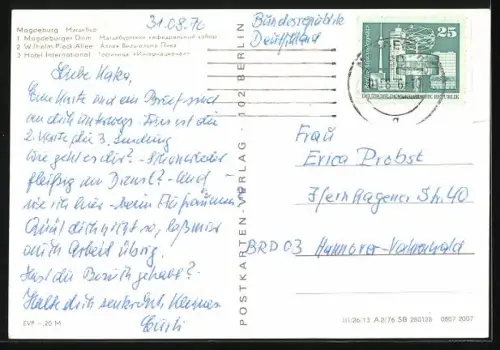 31.08.76
Magdeburg Магдебург
1 Magdeburger Dom Магдебургский кафедральный собор
2 Wilhelm-Pieck-Allee Аллея Вильгельма Пика
3 Hotel International Гостиница «Интернациональ»
Liebe
Eine Karte und ein Brief sind
an dich unterwegs. Dies ist die
2. Karte die 3. Sendung
Wie geht es dir? - wieder
fleißig im Dienst? - Und
wie ich hier - beim
Quäl dich nicht so, laß mir
auch Arbeit übrig.
Hast du Besuch gehabt?
Halte dich senkrecht,
EVP -,20 M
POSTKARTEN-VERLAG · 102 BERLIN
Bundesrepublik
Deutschland
25
DEUTSCHE DEMOKRATISCHE REPUBLIK
Frau
Erica Probst
Isernhagener Str. 40
BRD 03 Hannover-Vahrenwald
III/26/13 A 2/76 SB 280138 0807 2007